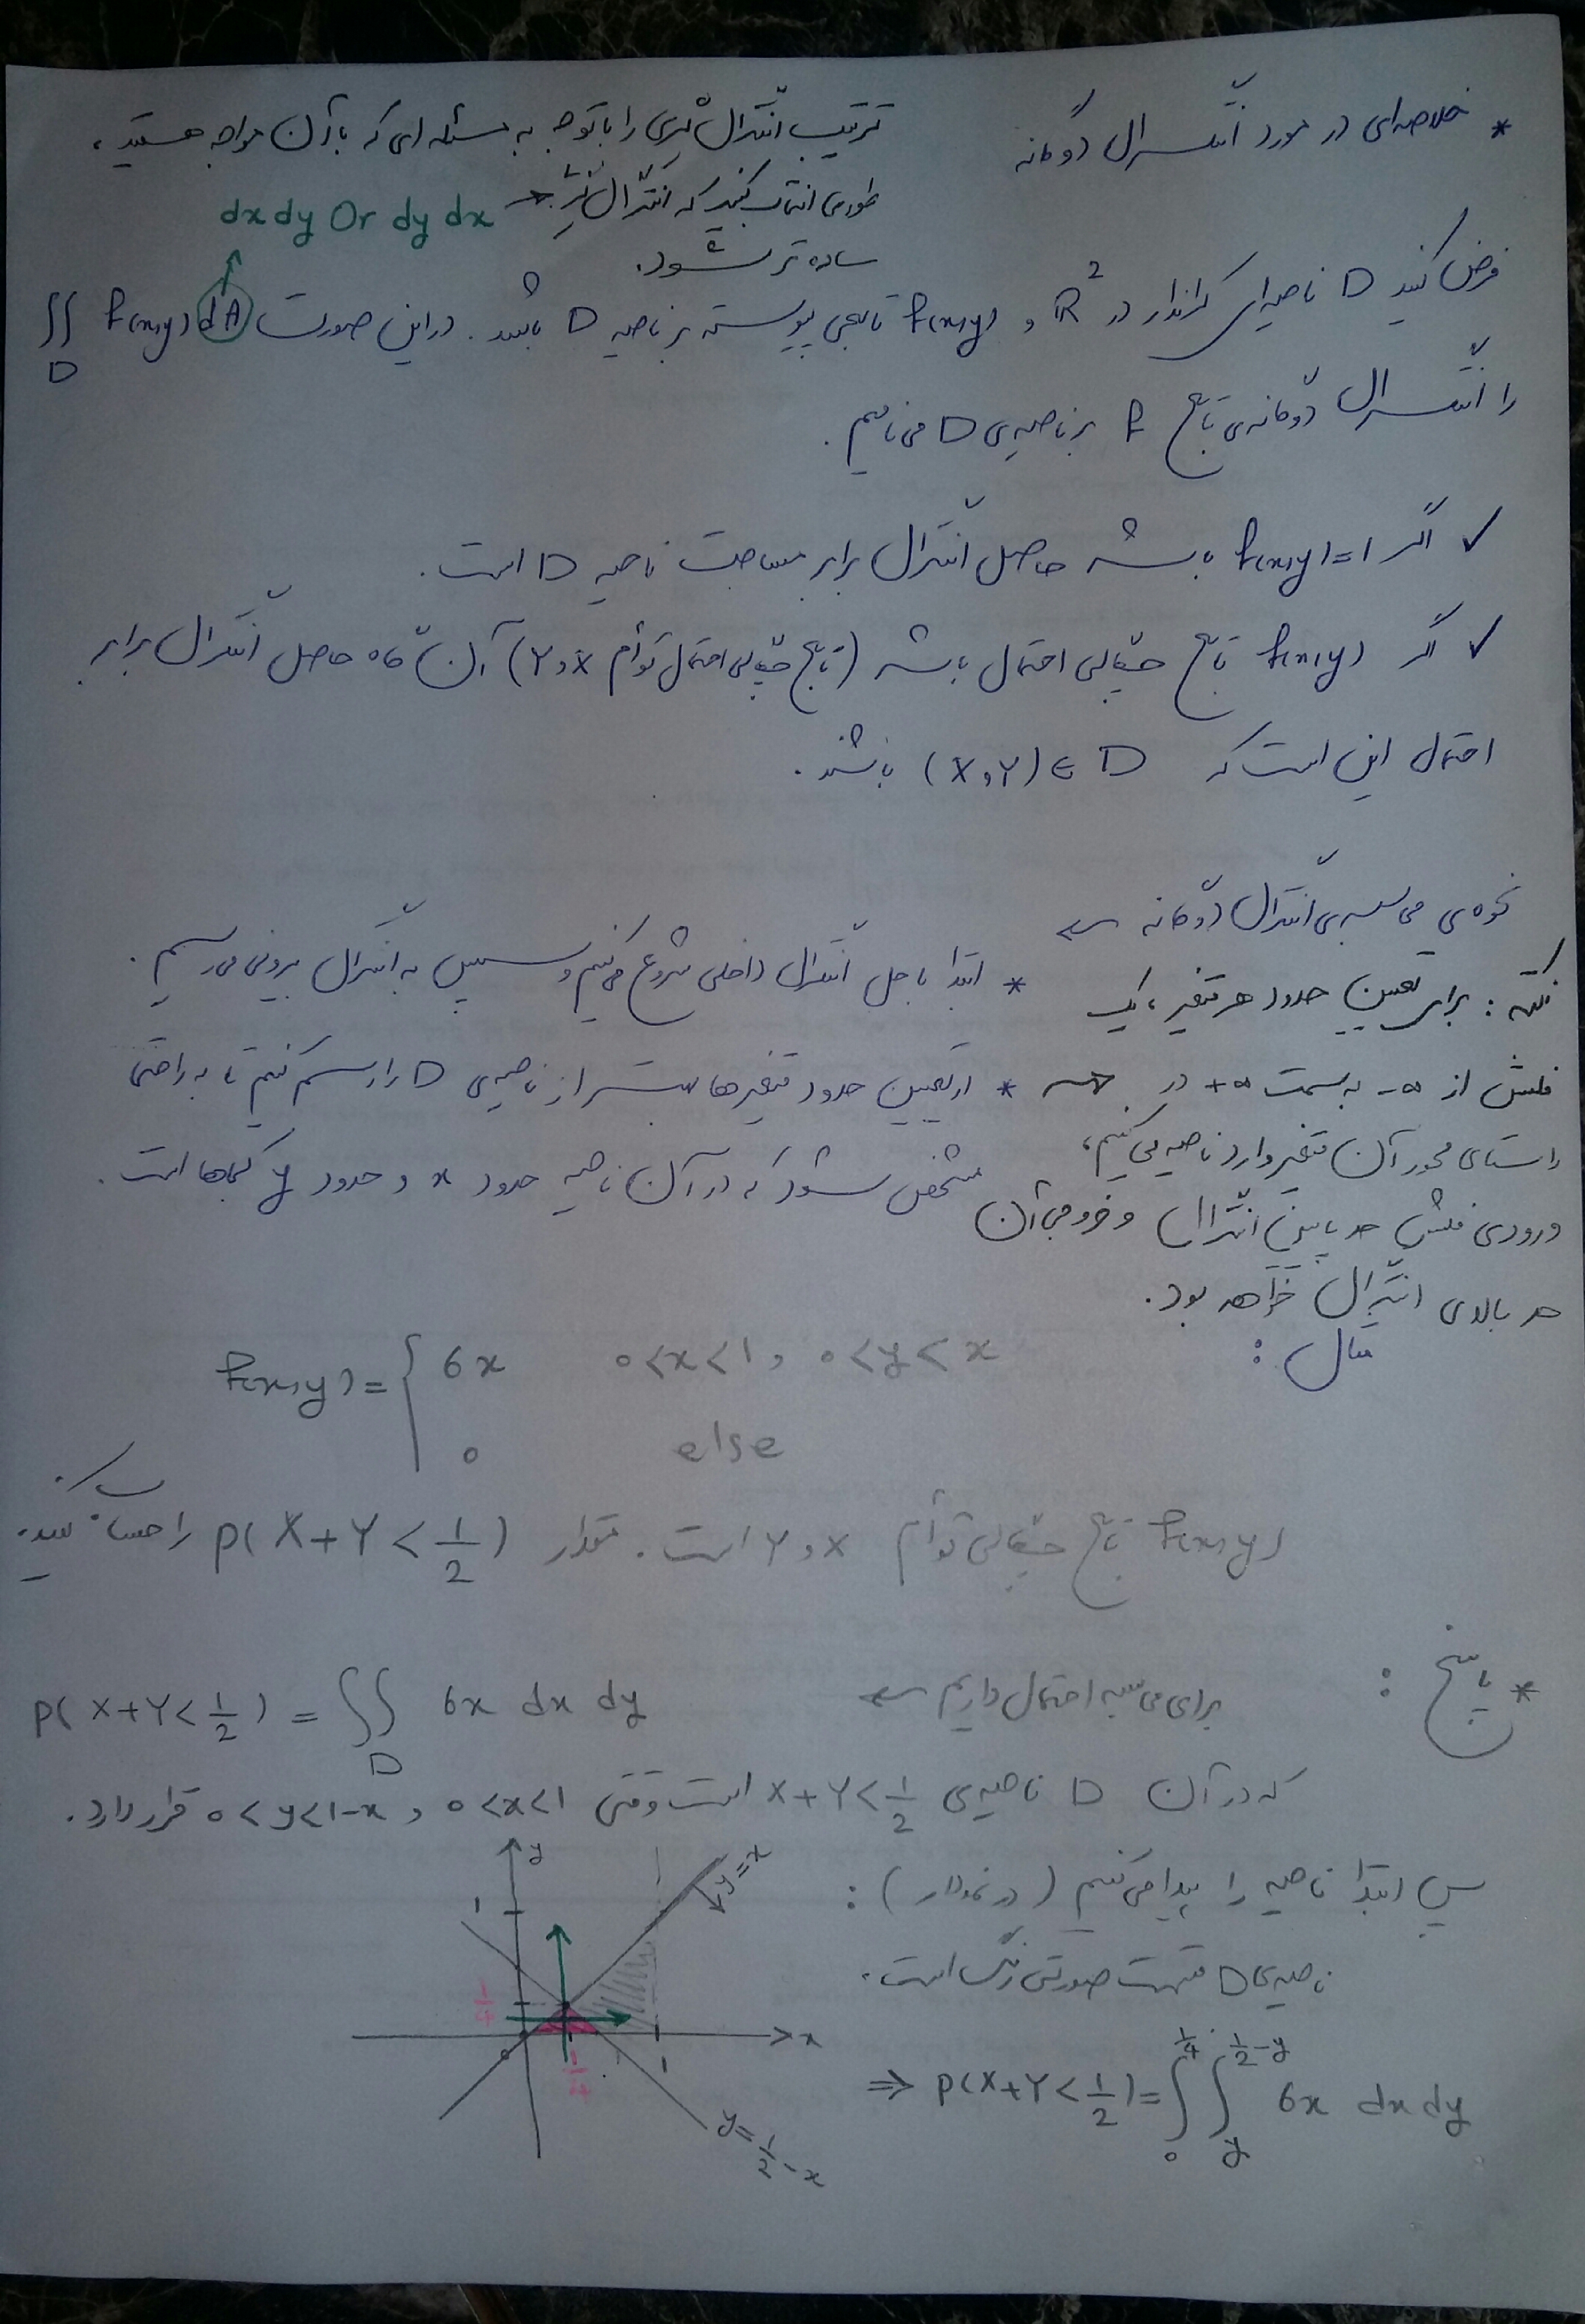 * خلاصه‌ای در مورد انتگرال دوگانه
ترتیب انتگرال گیری را با توجه به مسئله ای که با آن مواجه هستید،
طوری انتخاب کنید که انتگرال
ساده تر شود.
dx dy Or dy dx
فرض کنید D ناحیه‌ای کراندار در R² و f(x,y) تابعی پیوسته بر ناحیه D باشد. در این صورت ∬_D f(x,y) dA
را انتگرال دوگانه‌ی تابع f بر ناحیه‌ی D می نامیم.
✓ اگر f(x,y)=1 باشد حاصل انتگرال برابر مساحت ناحیه D است.
✓ اگر f(x,y) تابع چگالی احتمال باشد (تابع چگالی احتمال توأم X و Y) آن گاه حاصل انتگرال برابر
احتمال این است که (X,Y) ∈ D باشند.
نحوه‌ی محاسبه‌ی انتگرال دوگانه ←
* ابتدا با حل انتگرال داخلی شروع می‌کنیم و سپس به انتگرال بیرونی می رسیم.
* در تعیین حدود متغیرها بهتر است ناحیه‌ی D را رسم کنیم تا به راحتی
مشخص شود که در آن ناحیه حدود x و حدود y کجاها است.
نکته: برای تعیین حدود هر متغیر، یک
فلش از -∞ به سمت +∞ در
راستای محور آن متغیر وارد ناحیه می کنیم،
ورودی فلش حد پایین انتگرال و خروجی آن
حد بالای انتگرال خواهد بود.
مثال:
f(x,y) = { 6x 0<x<1, 0<y<x
0 else
f(x,y) تابع چگالی توأم X و Y است. مقدار P(X+Y<1/2) را حساب کنید.
* پاسخ:
برای محاسبه احتمال داریم ← P(X+Y<1/2) = ∬_D 6x dx dy
که در آن D ناحیه‌ی X+Y<1/2 است وقتی 0<x<1 و 0<y<1-x قرار دارد.
پس ابتدا ناحیه را پیدا می کنیم (در نمودار):
ناحیه‌ی D قسمت صورتی رنگ است.
⇒ P(X+Y<1/2) = ∫_0^{1/4} ∫_y^{1/2-y} 6x dx dy
y
y=x
1
1/4
x
0
1/4
1
y=1/2-x